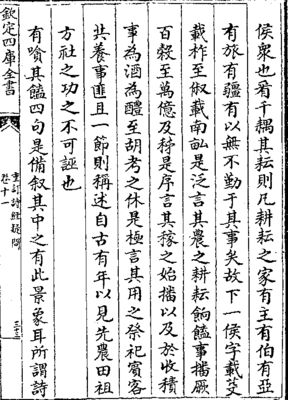 侯衆也看千耦其耘則凡耕耘之家有主有伯有亞
有旅有彊有以無不勤于其事矣故下一侯字載芟
載柞至俶載南畝是泛言其農之耕耘餉饁事播厥
百穀至萬億及秭是序言其稼之始播以及於收積
事為酒為醴至胡考之休是極言其用之祭祀賓客
共養事匪且一節則稱述自古有年以見先農田祖
方社之功之不可誣也
有嗿其饁四句是備叙其中之有此景象耳所謂詩
欽定四庫全書
卷十一
三十三